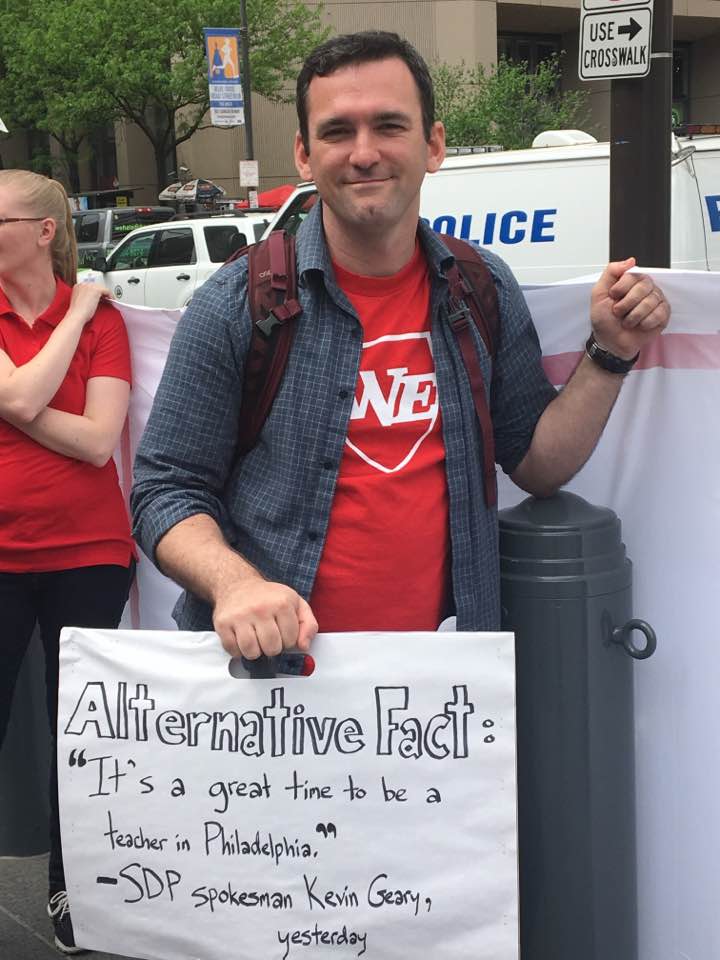 USE
CROSSWALK
POLICE
WE
Alternative Fact:
"It's a great time to be a
teacher in Philadelphia."
-SDP spokesman Kevin Geary,
yesterday